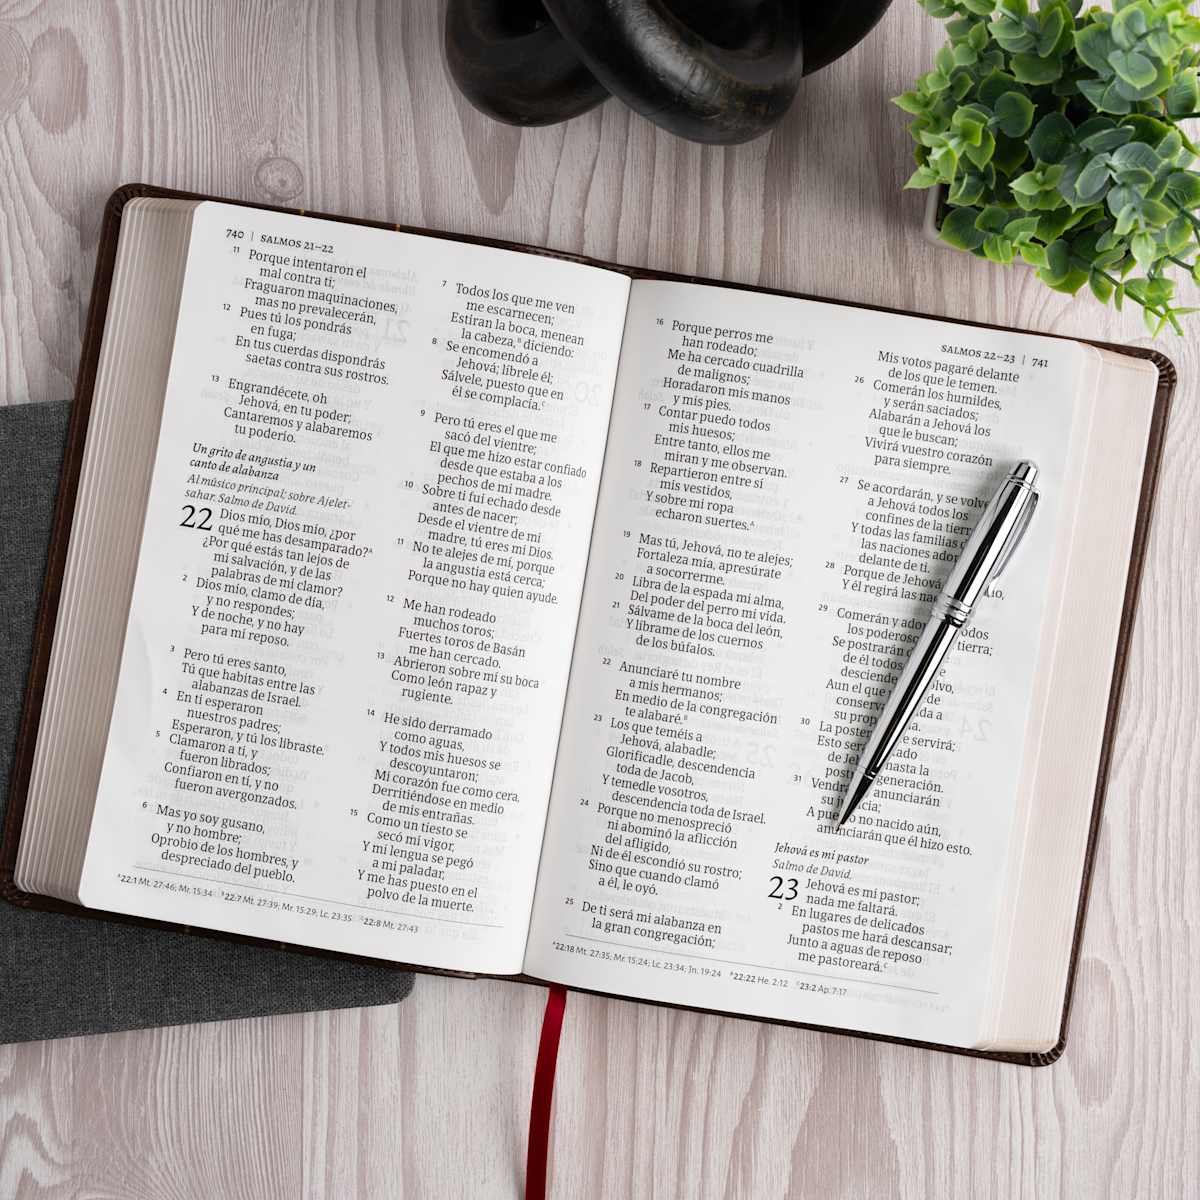 740 | SALMOS 21–22
11 Porque intentaron el
mal contra ti;
Fraguaron maquinaciones,
mas no prevalecerán,
12 Pues tú los pondrás
en fuga;
En tus cuerdas dispondrás
saetas contra sus rostros.
13 Engrandécete, oh
Jehová, en tu poder;
Cantaremos y alabaremos
tu poderío.
Un grito de angustia y un
canto de alabanza
Al músico principal; sobre Ajelet-
sahar. Salmo de David.
22 Dios mío, Dios mío, ¿por
qué me has desamparado?A
¿Por qué estás tan lejos de
mi salvación, y de las
palabras de mi clamor?
2 Dios mío, clamo de día,
y no respondes;
Y de noche, y no hay
para mí reposo.
3 Pero tú eres santo,
Tú que habitas entre las
alabanzas de Israel.
4 En ti esperaron
nuestros padres;
Esperaron, y tú los libraste.
5 Clamaron a ti, y
fueron librados;
Confiaron en ti, y no
fueron avergonzados.
6 Mas yo soy gusano,
y no hombre;
Oprobio de los hombres, y
despreciado del pueblo.
7 Todos los que me ven
me escarnecen;
Estiran la boca, menean
la cabeza,B diciendo:
8 Se encomendó a
Jehová; líbrele él;
Sálvele, puesto que en
él se complacía.C
9 Pero tú eres el que me
sacó del vientre;
El que me hizo estar confiado
desde que estaba a los
pechos de mi madre.
10 Sobre ti fui echado desde
antes de nacer;
Desde el vientre de mi
madre, tú eres mi Dios.
11 No te alejes de mí, porque
la angustia está cerca;
Porque no hay quien ayude.
12 Me han rodeado
muchos toros;
Fuertes toros de Basán
me han cercado.
13 Abrieron sobre mí su boca
Como león rapaz y
rugiente.
14 He sido derramado
como aguas,
Y todos mis huesos se
descoyuntaron;
Mi corazón fue como cera,
Derritiéndose en medio
de mis entrañas.
15 Como un tiesto se
secó mi vigor,
Y mi lengua se pegó
a mi paladar,
Y me has puesto en el
polvo de la muerte.
A22:1 Mt. 27:46; Mr. 15:34 B22:7 Mt. 27:39; Mr. 15:29; Lc. 23:35 C22:8 Mt. 27:43
SALMOS 22–23 | 741
16 Porque perros me
han rodeado;
Me ha cercado cuadrilla
de malignos;
Horadaron mis manos
y mis pies.
17 Contar puedo todos
mis huesos;
Entre tanto, ellos me
miran y me observan.
18 Repartieron entre sí
mis vestidos,
Y sobre mi ropa
echaron suertes.A
19 Mas tú, Jehová, no te alejes;
Fortaleza mía, apresúrate
a socorrerme.
20 Libra de la espada mi alma,
Del poder del perro mi vida.
21 Sálvame de la boca del león,
Y líbrame de los cuernos
de los búfalos.
22 Anunciaré tu nombre
a mis hermanos;
En medio de la congregación
te alabaré.B
23 Los que teméis a
Jehová, alabadle;
Glorificadle, descendencia
toda de Jacob,
Y temedle vosotros,
descendencia toda de Israel.
24 Porque no menospreció
ni abominó la aflicción
del afligido,
Ni de él escondió su rostro;
Sino que cuando clamó
a él, le oyó.
25 De ti será mi alabanza en
la gran congregación;
Mis votos pagaré delante
de los que le temen.
26 Comerán los humildes,
y serán saciados;
Alabarán a Jehová los
que le buscan;
Vivirá vuestro corazón
para siempre.
27 Se acordarán, y se volve
a Jehová todos los
confines de la tierra
Y todas las familias d
las naciones ador
delante de ti.
28 Porque de Jehová
Y él regirá las na
29 Comerán y ador todos
los poderoso tierra;
Se postrarán
de él todos
desciende olvo,
Aun el que de
conserva da a
su prop a.
30 La poster e servirá;
Esto será ado
de Je hasta la
postr generación.
31 Vendrá anunciarán
su j icia;
A pue o no nacido aún,
anunciarán que él hizo esto.
Jehová es mi pastor
Salmo de David.
23 Jehová es mi pastor;
nada me faltará.
2 En lugares de delicados
pastos me hará descansar;
Junto a aguas de reposo
me pastoreará.C
A22:18 Mt. 27:35; Mr. 15:24; Lc. 23:34; Jn. 19:24 B22:22 He. 2:12 C23:2 Ap. 7:17